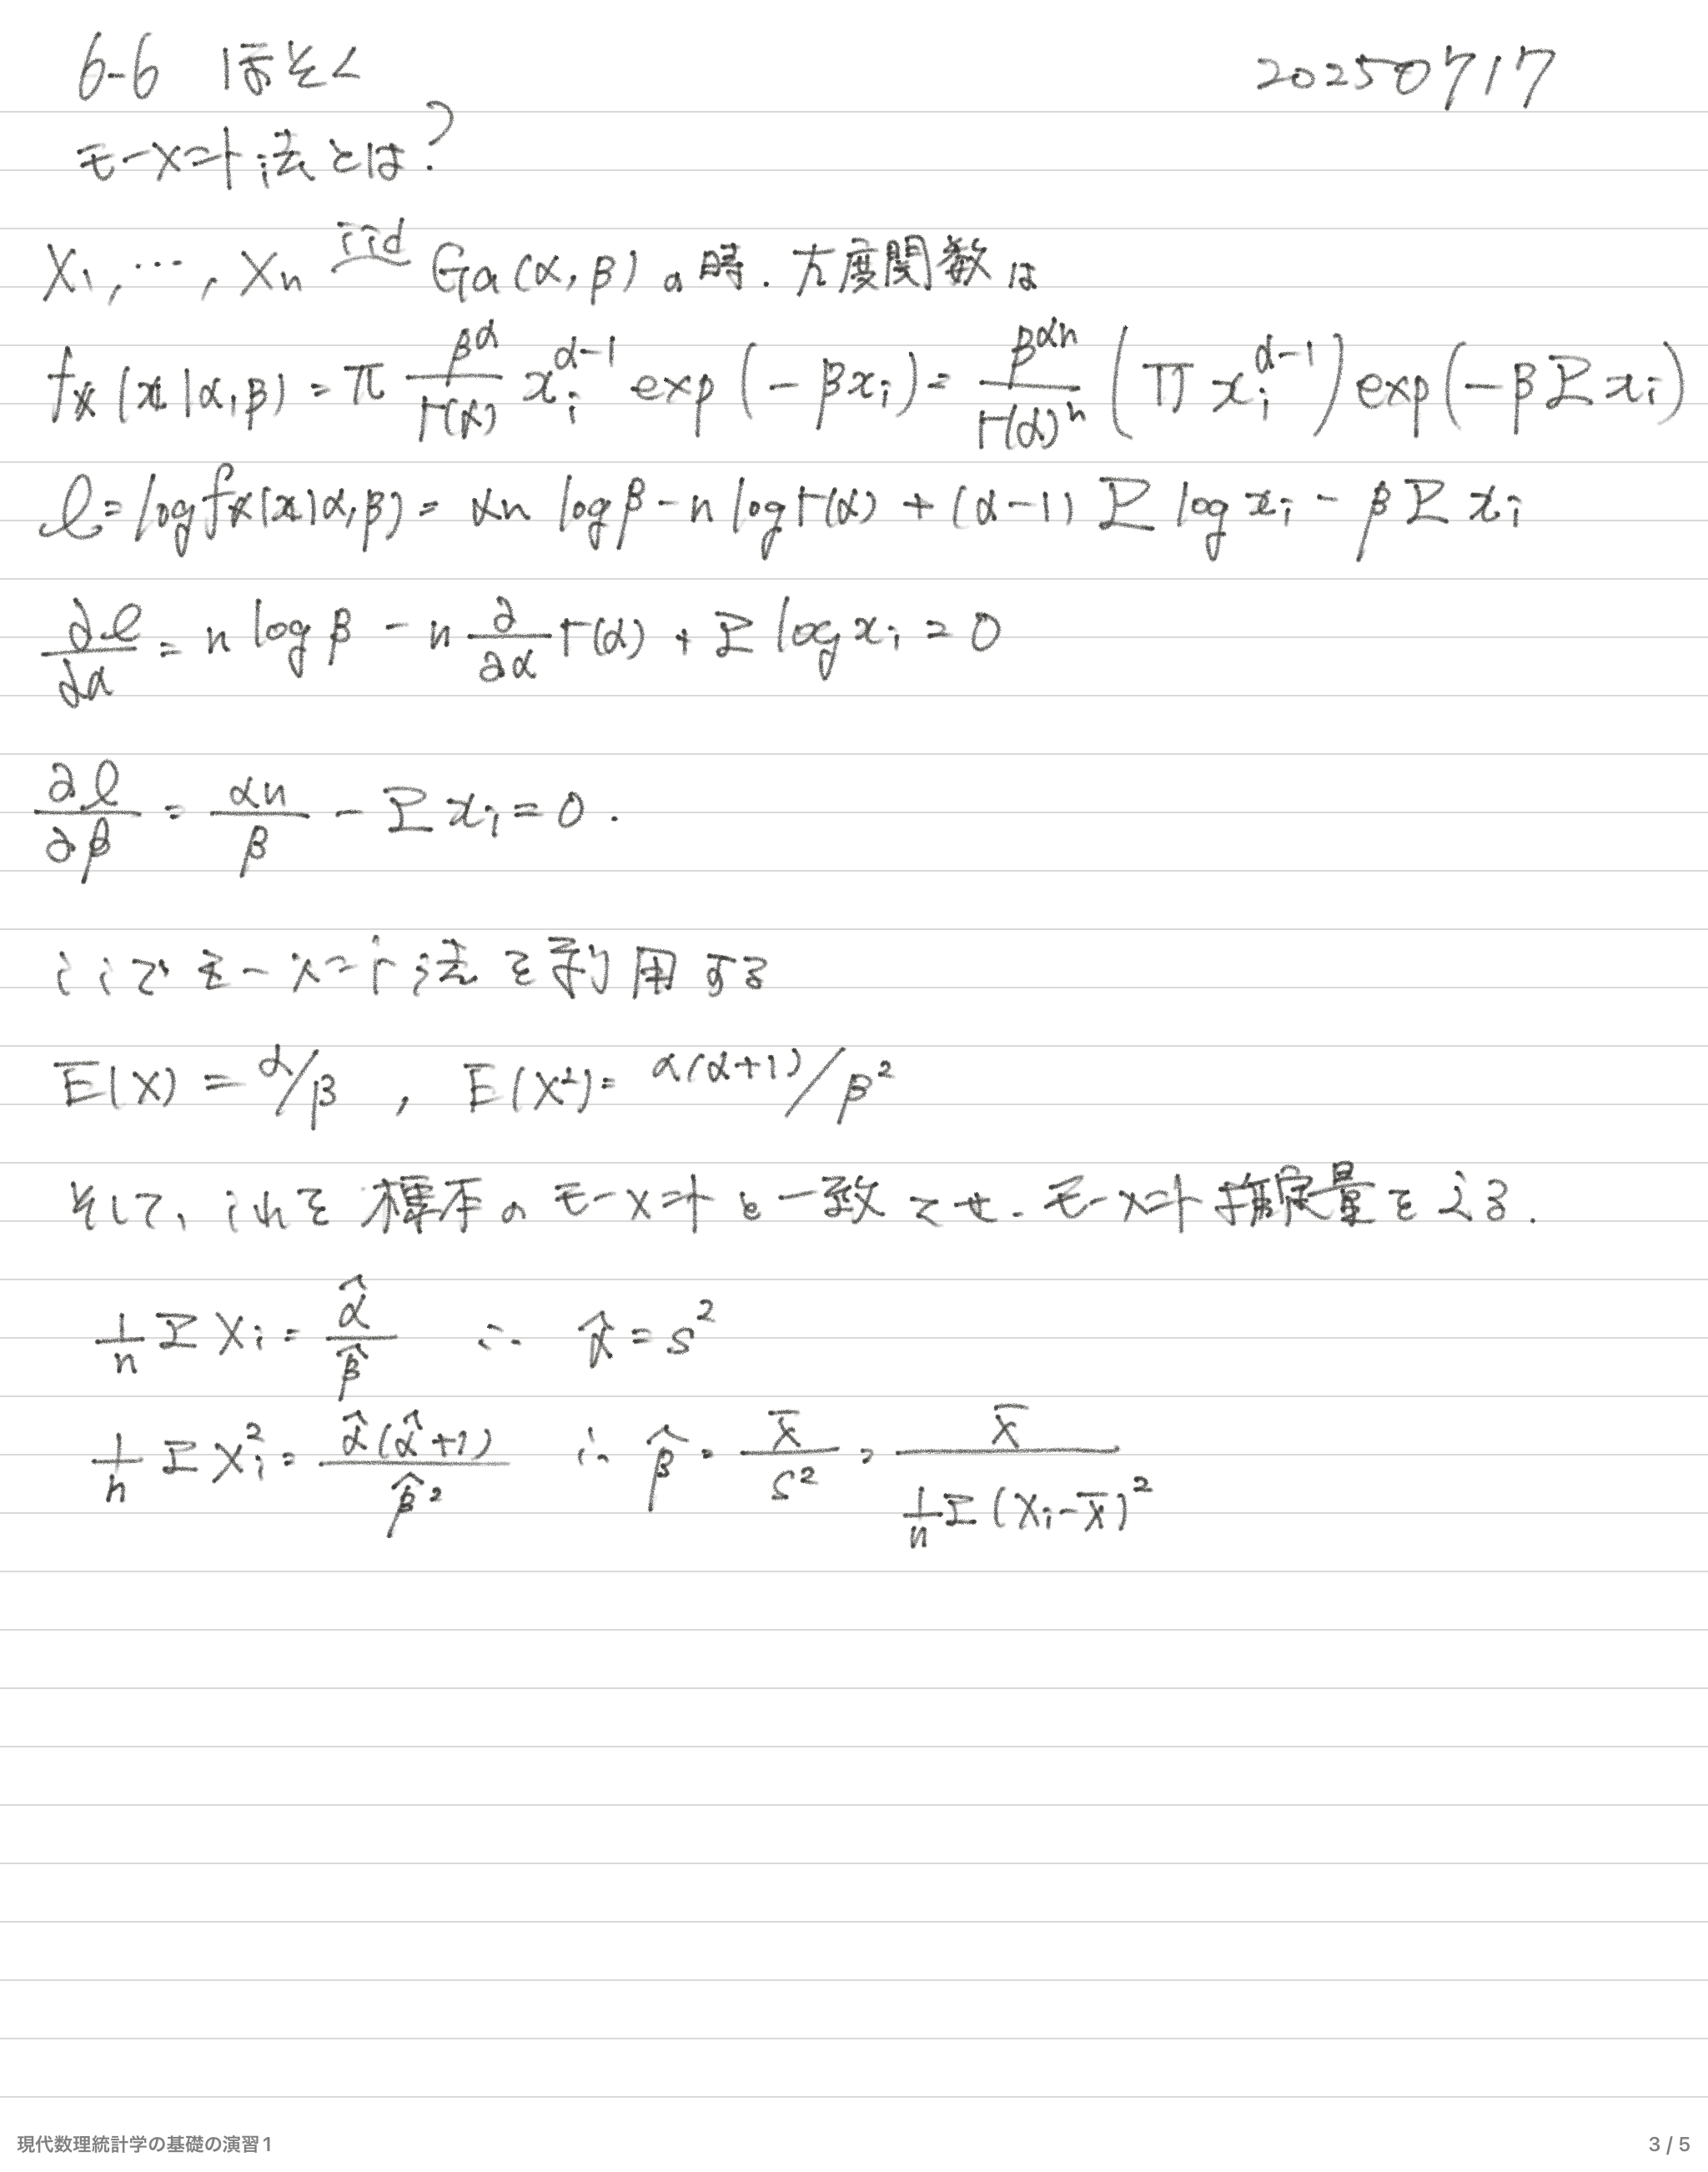 6-6 ほそく 20250717
モーメント法とは?
X₁, …, Xₙ ~iid Ga(α, β) の時. 尤度関数は
f_X(x|α,β) = π β^α/Γ(α) x_i^{α-1} exp(-βx_i) = β^{αn}/Γ(α)^n (Π x_i^{α-1}) exp(-βΣx_i)
ℓ = log f_X(x|α,β) = αn log β - n log Γ(α) + (α-1) Σ log x_i - β Σ x_i
∂ℓ/∂α = n log β - n ∂/∂α Γ(α) + Σ log x_i = 0
∂ℓ/∂β = αn/β - Σ x_i = 0.
ここでモーメント法を利用する
E(X) = α/β , E(X²) = α(α+1)/β²
そして、これを標本のモーメントと一致させ. モーメント推定量をえる.
1/n Σ X_i = α̂/β̂ ∴ α̂ = s²
1/n Σ X_i² = α̂(α̂+1)/β̂² ∴ β̂ = X̄/S² = X̄/(1/n Σ(X_i-X̄)²)
現代数理統計学の基礎の演習1 3 / 5